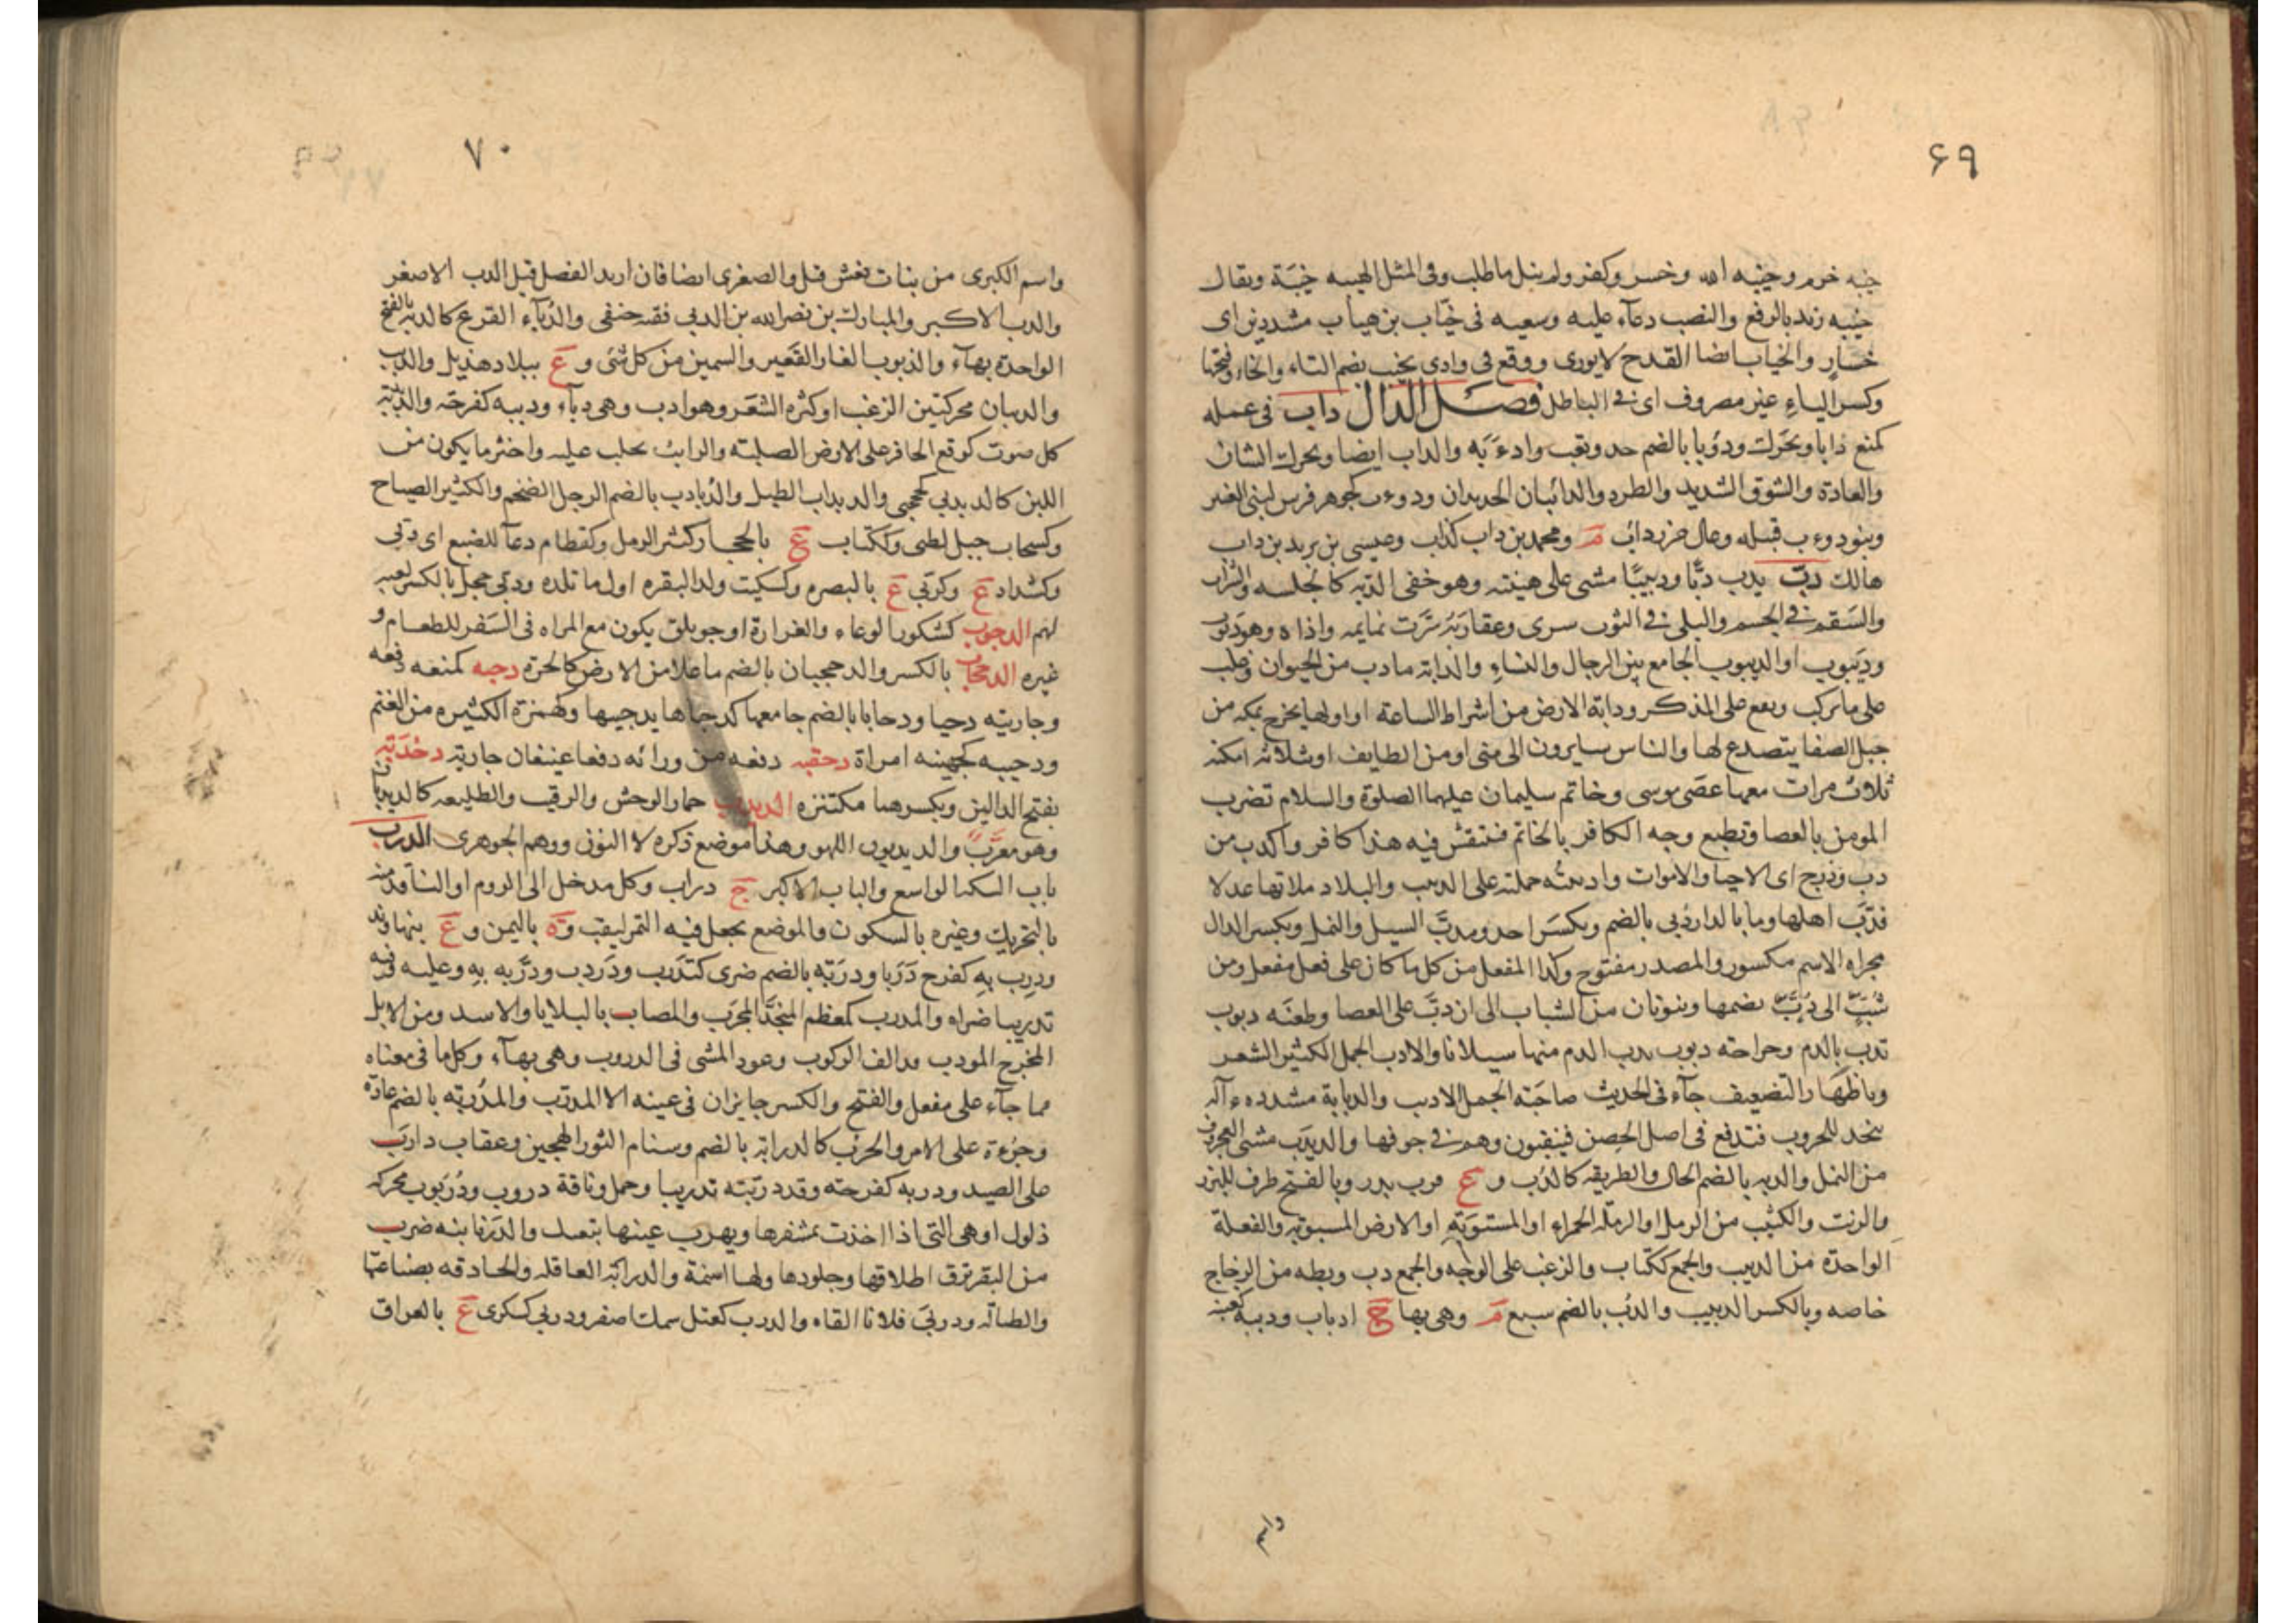 ۶۹
خيبه حرم وخيبه الله وخسر وكفر ولم ينل ما طلب وفى المثل الهيبه خيبَة ويقال
خيبه زيد بالرفع والنصب دعآء عليه وسعيه فى خيّاب بن هيّاب مشددين اى
خسارٍ والخياب ايضا القدح لا يورى ووقع فى وادى تخيب بضم التاء والخاء وفتحها
وكسر الياءِ غير مصروف اى فى الباطل فصـل الدال داب فى عمله
كمنع دابا ويحرك ودؤبا بالضم جد وتعب وادءَبَه والداب ايضا ويحرك الشان
والعادة والشوق الشديد والطرد والدائبان الجديدان ودوءب كجوهر فرس لبنى العنبر
وبنو دوءب قبيله وصال مزرد دائب مـ ومحمد بن داب كذاب وعيسى بن يزيد بن داب
هالك دبّ يدب دبًّا ودبيبًا مشى على هينته وهو خفى الدبه كالجلسه والشراب
والسَقم فى الجسم والبلى فى الثوب سرى وعقاربُه سَرَت نمايمه واذاه وهو دبوب
وديَبوب او الديبوب الجامع بين الرجال والنساءِ والدابة مادب من الحيوان وغلب
على ما يركب ويقع على المذكر ودابة الارض من اشراط الساعة او اولها يخرج بمكه من
جبل الصفا يتصدع لها والناس سايرون الى منى او من الطايف او ثلاثه امكنه
ثلاث مرات معها عصى موسى وخاتم سليمان عليهما الصلوة والسلام تضرب
المومن بالعصا وتطبع وجه الكافر بالخاتم فتنقش فيه هذا كافر واكذب من
دب ودرج اى الاحيا والاموات وادببته حملته على الدبيب والبلاد ملاتها عدلا
فدَبَّ اهلها وما بالدار دُبى بالضم ويكسَر احد ومدبّ السيل والنمل وبكسر الدال
مجراه الاسم مكسور والمصدر مفتوح وكذا المفعل من كل ما كان على فعل مفعل ومن
شُبَّ الى دُبَّ بضمها وينونان من الشباب الى ان دبَّ على العصا وطعنه دبوب
تدب بالدم وجراحته دبوب يدب الدم منها سيلانا والادب الجمل الكثير الشعر
وباظهَار التضعيف جآء فى الحديث صاحبَة الجمل الادبب والدبابة مشدده ءآله
تتخذ للحروب فتدفع فى اصل الحِصن فينقبون وهم فى جوفها والديدَب مشى العجروف
من النمل والدبه بالضم الحال والطريقه كالدُب و ع قرب بدر وبالفتح ظرف للبزر
والزيت والكثيب من الرمل او الرملة الحمراءِ او المستويَةِ او الارض المسبوتة والفعلة
الواحدة من الدبيب والجمع ككتاب والزغب على الوجْه والجمع دب وبطه من الزجاج
خاصه وبالكسر الدبيب والدُب بالضم سبع مـ وهى بها ج ادباب ودببه كعنبه
واسم
۷۰
واسم الكبرى من بنات نعش قيل والصغرى ايضا فان اريد الفصل قيل الدب الاصغر
والدب الاكبر والمبارك بن نصرالله بن الدبى فقيه حنفى والدُبّآء القرع كالدبة بالفتح
الواحدة بهآء والدبوب الغار القَعير والسمين من كل شئ و ع ببلاد هذيل والدبب
والدببان محركتين الزغب او كثره الشعَر وهو ادب وهى دبآء ودببه كفرحَه والدَبْدَبَة
كل صوت كوقع الحافر على الارض الصلبة والرائبُ يحلب عليه واخثر ما يكون من
اللبن كالدبدبى كحجبى والدبداب الطبل والدُبادب بالضم الرجل الضخم والكثير الصياح
وكسحاب جبل لطيى وككتاب ع بالحجاز كثير الرمل وكقطام دعآ للضبع اى دبى
وكشداد ع وكربّى ع بالبصره وكسكيت ولد البقره اول ما تلده ودبى حجل بالكسر لعبه
لهم الدجوب كشكور الوعاء والغرارة او جويلق يكون مع المراه فى السَفر للطعام و
غيره الدحجاب بالكسر والدحجبان بالضم ما علا من الارض كالحرة دحبه كمنعه دفعه
وجاريته دحبا ودحابا بالضم جامعها كدحباها يدحبيها وكهمزة الكثيره من الغنم
ودحيبه كجهينه امراة دحقبه دفعه من ورائه دفعا عنيفا جارية دخدَبَة
بفتح الدالين وبكسرهما مكتنزه الديدب حمار الوحش والرقيب والطليعه كالديدبان
وهو معرَّب والديدبون اللهو وهذا موضع ذكره لا النون ووهم الجوهرى الدرب
باب السكه الواسع والباب الاكبر ج دراب وكل مدخل الى الروم او النافد منه
بالتحريك وغيره بالسكون والموضع يجعل فيه التمر ليقب وة باليمن و ع بنهاوند
ودرِب بهِ كفرح دَرَبا ودرَبَه بالضم ضرى كتدَرب ودَردب ودرَّبه بهِ وعليه وفيه
تدريبا ضراه والمدرب كمعظم المنجَّد المجرَب والمصاب بالبلايا والاسد ومن الابل
المخرج المودب قد الف الركوب وعود المشى فى الدروب وهى بهآء وكل ما فى معناه
مما جآء على مفعل والفتح والكسر جايزان فى عينه الا المدرَب والدُربَه بالضم عادة
وجرءة على الامر والحرب كالدرابة بالضم وسنام الثور الهجين وعقاب دارَب
على الصيد ودربه كفرحته وقد درَبته تدريبا وجمل وناقة دروب ودُرَبوب محركه
ذلول او هى التى اذا اخذت بمشفرها ونهزت عينها تبعتك والدربانيه ضرب
من البقر ترق اظلافها وجلودها ولها اسنمة والدرابة العاقله والحاذقه بصناعتها
والطبالة ودربى فلانا القاه والدرب كعتل سمك اصفر ودربى كسكرى ع بالعراق